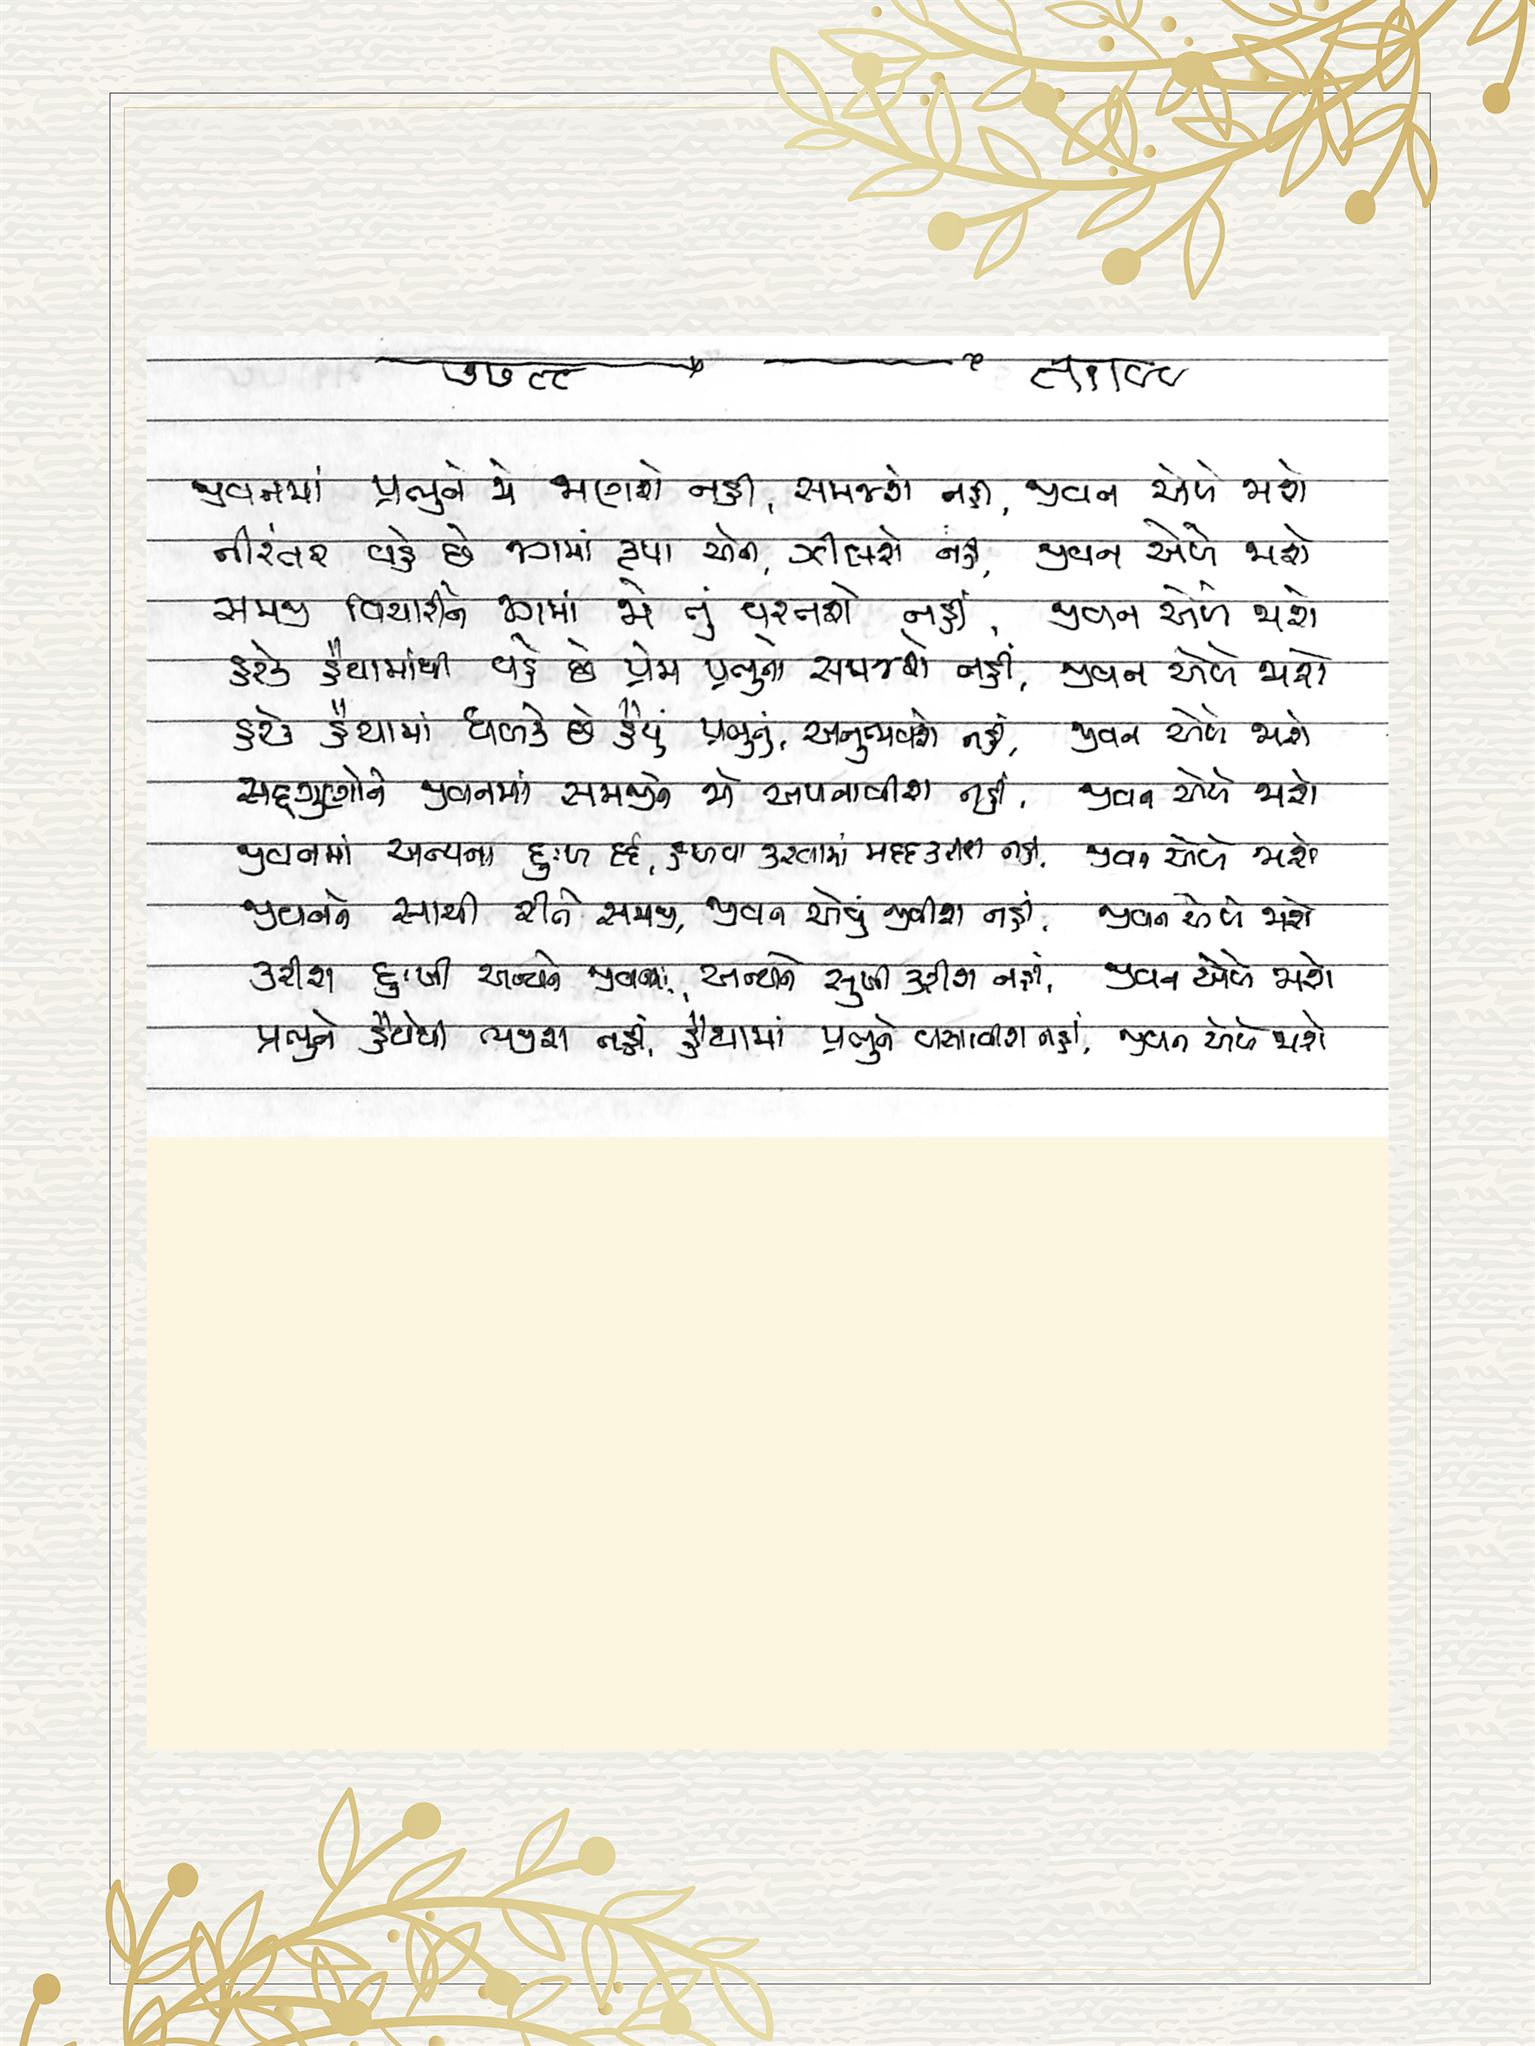 જીવનમાં પ્રભુને જો જાણશે નહીં, સમજશે નહીં, જીવન એળે જાશે
નીરંતર વહે છે જગમાં કૃપા એની, ઝીલશે નહીં, જીવન એળે જાશે
સમજી વિચારીને જગમાં જો તું વરતશે નહીં, જીવન એળે જાશે
હરેક હૈયામાંથી વહે છે પ્રેમ પ્રભુનો સમજશે નહીં, જીવન એળે જાશે
હરેક હૈયામાં ધબકે છે હૈયું પ્રભુનું, અનુભવશે નહીં, જીવન એળે જાશે
સદ્ગુણોને જીવનમાં સમજીને જો અપનાવીશ નહીં, જીવન એળે જાશે
જીવનમાં અન્યના દુઃખ દર્દ, હળવા કરવામાં મદદ કરીશ નહીં, જીવન એળે જાશે
જીવનને સાચી રીતે સમજી, જીવન એવું જીવીશ નહીં, જીવન એળે જાશે
કરીશ દુઃખી અન્યને જીવનમાં, અન્યને સુખી કરીશ નહીં, જીવન એળે જાશે
પ્રભુને હૈયેથી ત્યજીશ નહીં, હૈયામાં પ્રભુને વસાવીશ નહીં, જીવન એળે જાશે